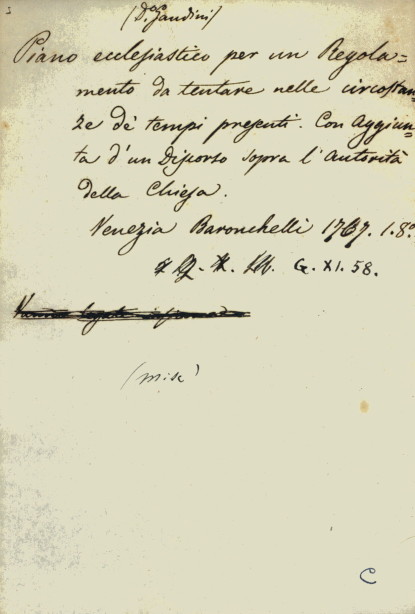 (D. Gaudini)
Piano ecclesiastico per un Regola=
mento da tentare nelle circostan=
ze de' tempi presenti. Con Aggiun=
ta d'un Discorso sopra l'Autorità
della Chiesa.
Venezia Baronchelli 1767. 1. 8°
G. XI. 58.
(misc)
C